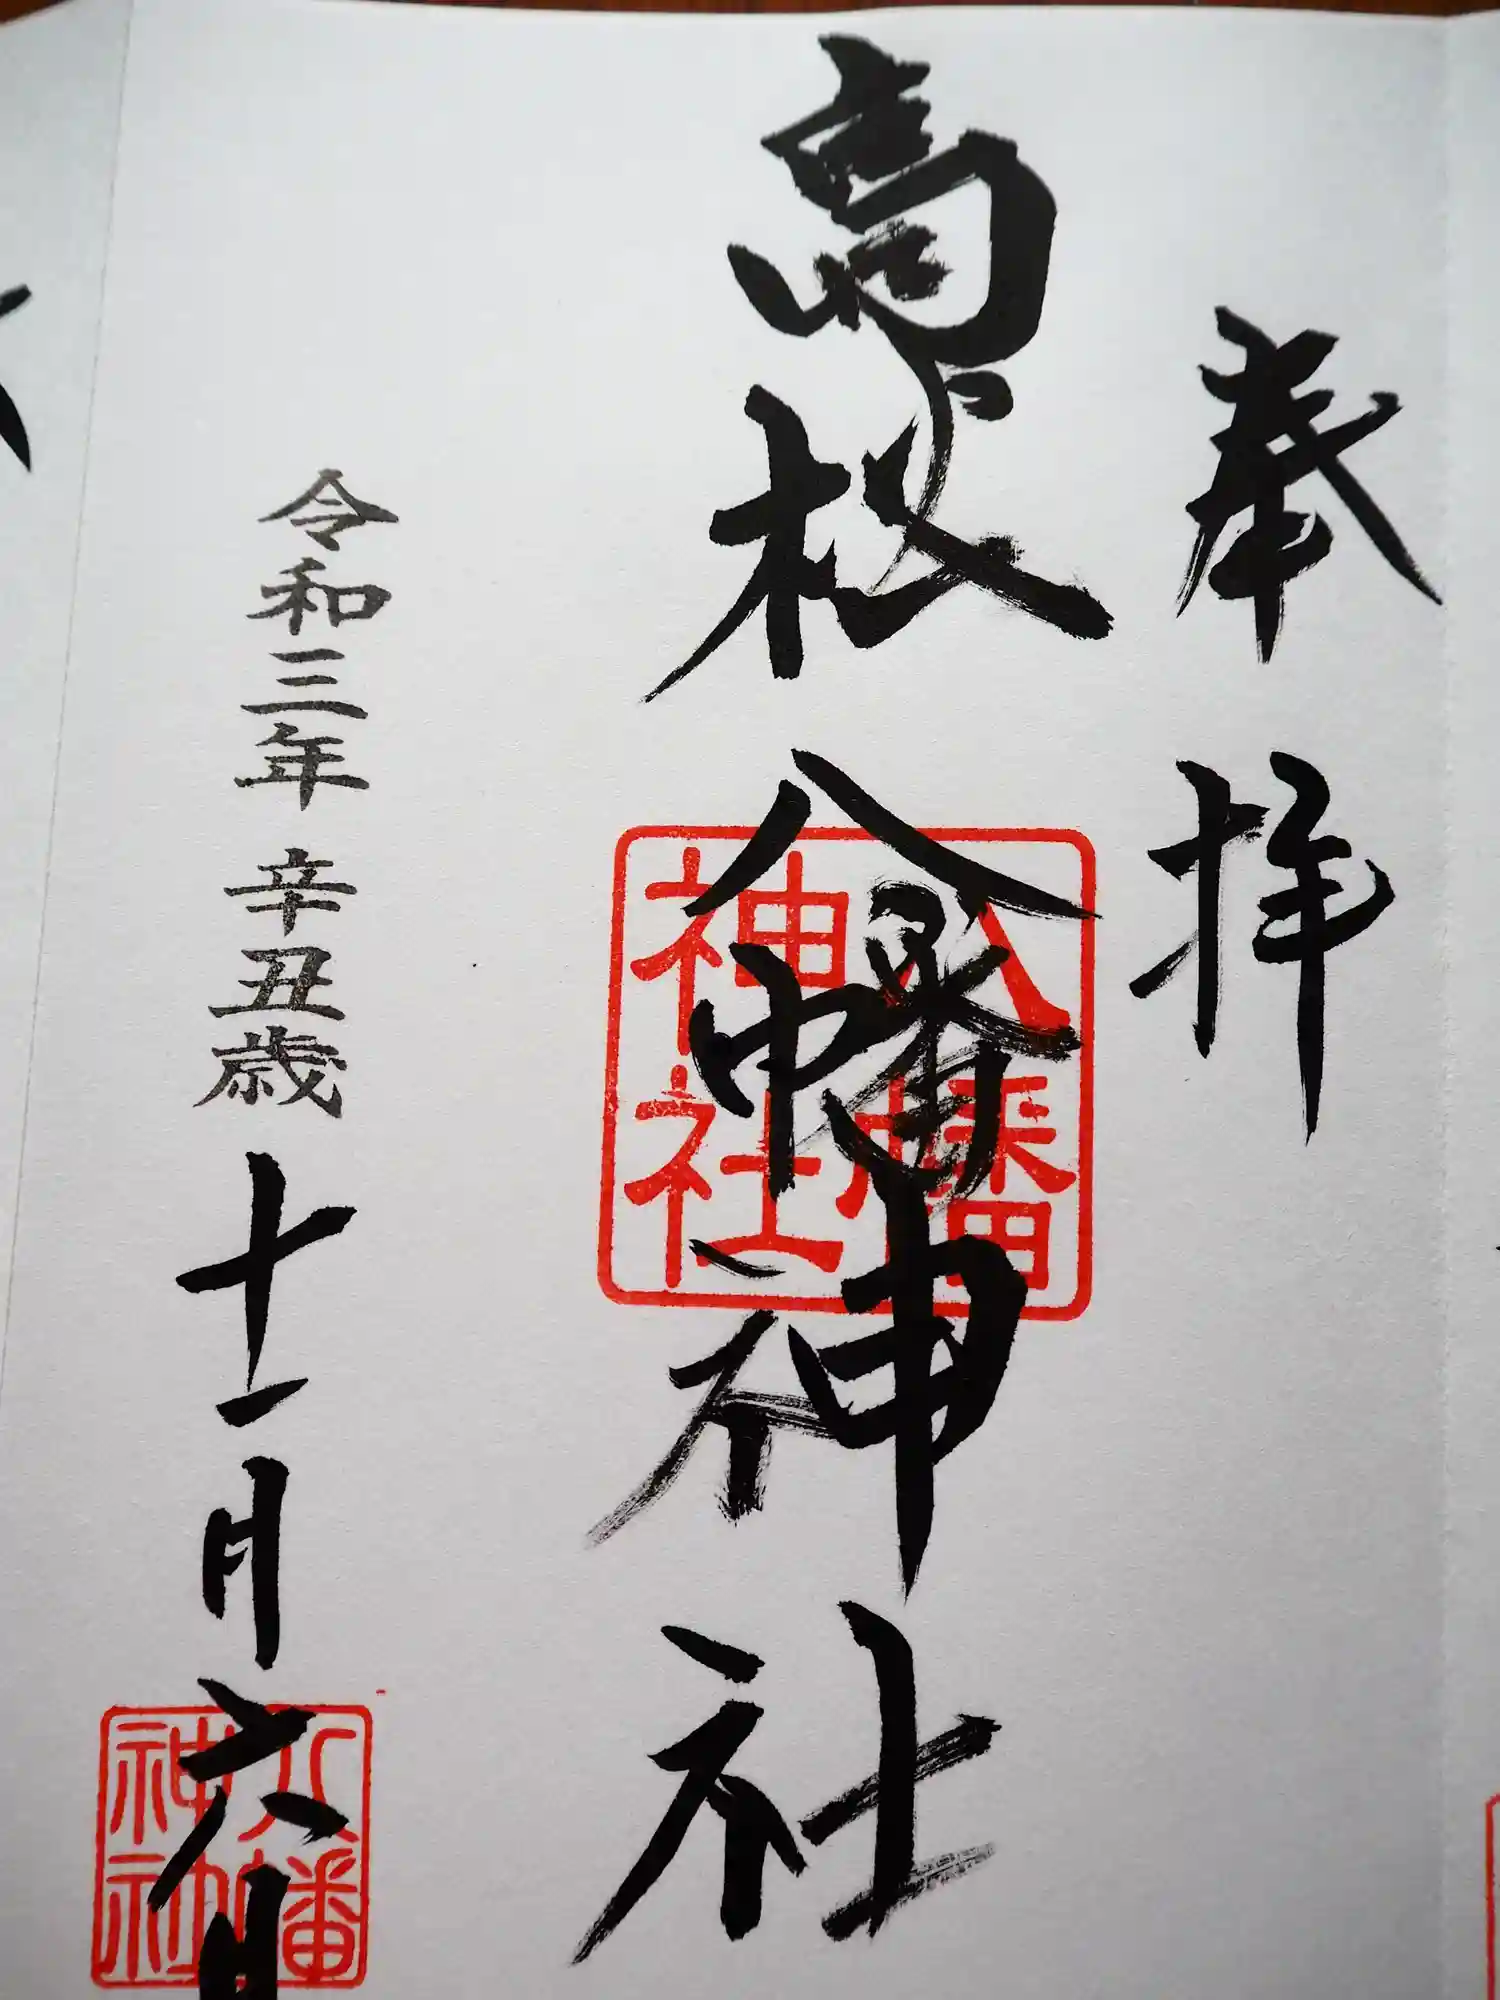 奉拝
高松八幡神社
八幡
神社
令和三年 辛丑歳 十一月六日
八幡
神社